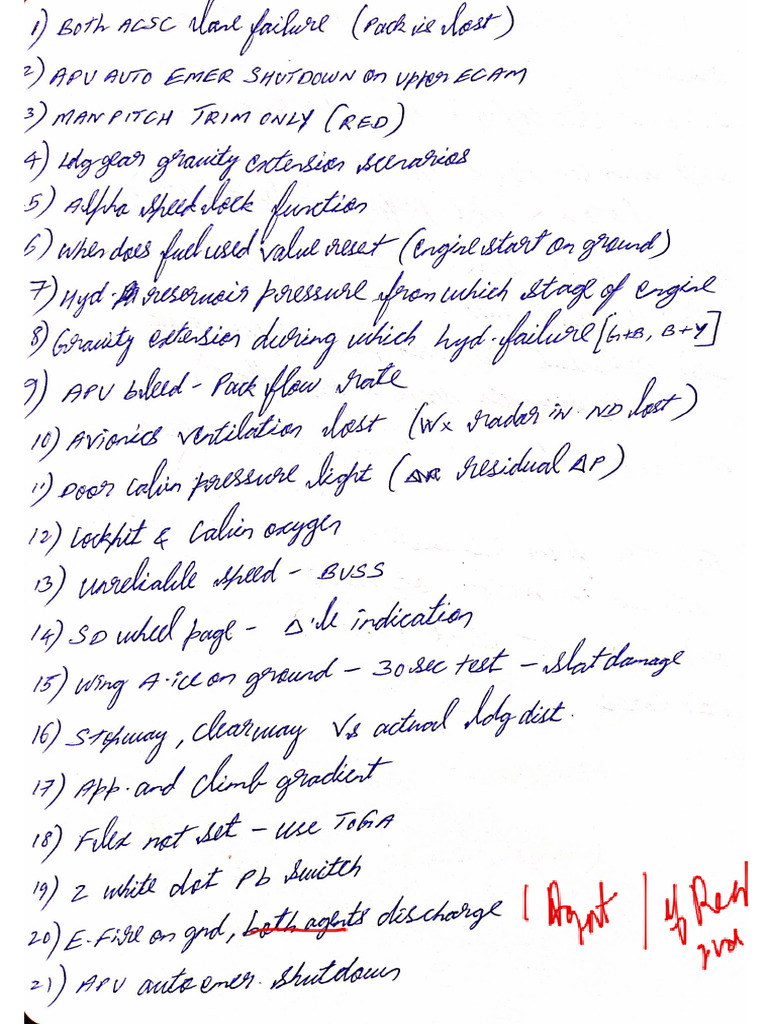 1) Both ACSC lane failure (Pack is lost)
2) APU AUTO EMER SHUTDOWN on upper ECAM
3) MAN PITCH TRIM ONLY (RED)
4) Ldg gear gravity extension scenarios
5) Alpha speed lock function
6) When does fuel used value reset (engine start on ground)
7) Hyd. reservoir pressure from which stage of engine
8) Gravity extension during which hyd. failure [G+B, B+Y]
9) APU bleed - Pack flow rate
10) Avionics ventilation lost (Wx radar in ND lost)
11) Door Cabin pressure light (residual ΔP)
12) Cockpit & Cabin oxygen
13) Unreliable speed - BUSS
14) SD wheel page - Δ'le indication
15) Wing A-ice on ground - 30 sec test - slat damage
16) Stopway, clearway Vs actual ldg dist.
17) App. and Climb gradient
18) Flex not set - use TOGA
19) 2 white dot Pb switch
20) E-Fire on gnd, both agents discharge 1 Agent / if Reqd 2nd
21) APU auto emer. shutdown